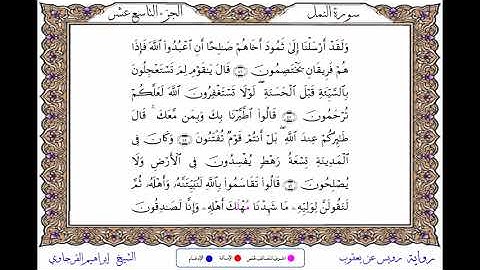 سورة النمل الجزء التاسع عشر
وَلَقَدْ أَرْسَلْنَا إِلَىٰ ثَمُودَ أَخَاهُمْ صَٰلِحًا أَنِ ٱعْبُدُوا۟ ٱللَّهَ فَإِذَا
هُمْ فَرِيقَانِ يَخْتَصِمُونَ قَالَ يَٰقَوْمِ لِمَ تَسْتَعْجِلُونَ
بِٱلسَّيِّئَةِ قَبْلَ ٱلْحَسَنَةِ لَوْلَا تَسْتَغْفِرُونَ ٱللَّهَ لَعَلَّكُمْ
تُرْحَمُونَ قَالُوا۟ ٱطَّيَّرْنَا بِكَ وَبِمَن مَّعَكَ قَالَ
طَٰٓئِرُكُمْ عِندَ ٱللَّهِ بَلْ أَنتُمْ قَوْمٌ تُفْتَنُونَ وَكَانَ فِى
ٱلْمَدِينَةِ تِسْعَةُ رَهْطٍ يُفْسِدُونَ فِى ٱلْأَرْضِ وَلَا
يُصْلِحُونَ قَالُوا۟ تَقَاسَمُوا۟ بِٱللَّهِ لَنُبَيِّتَنَّهُۥ وَأَهْلَهُۥ ثُمَّ
لَنَقُولَنَّ لِوَلِيِّهِۦ مَا شَهِدْنَا مُهْلَكَ أَهْلِهِۦ وَإِنَّا لَصَٰدِقُونَ
رواية رويس عن يعقوب الإمالة الإدغام الشيخ إبراهيم الفرجاوي